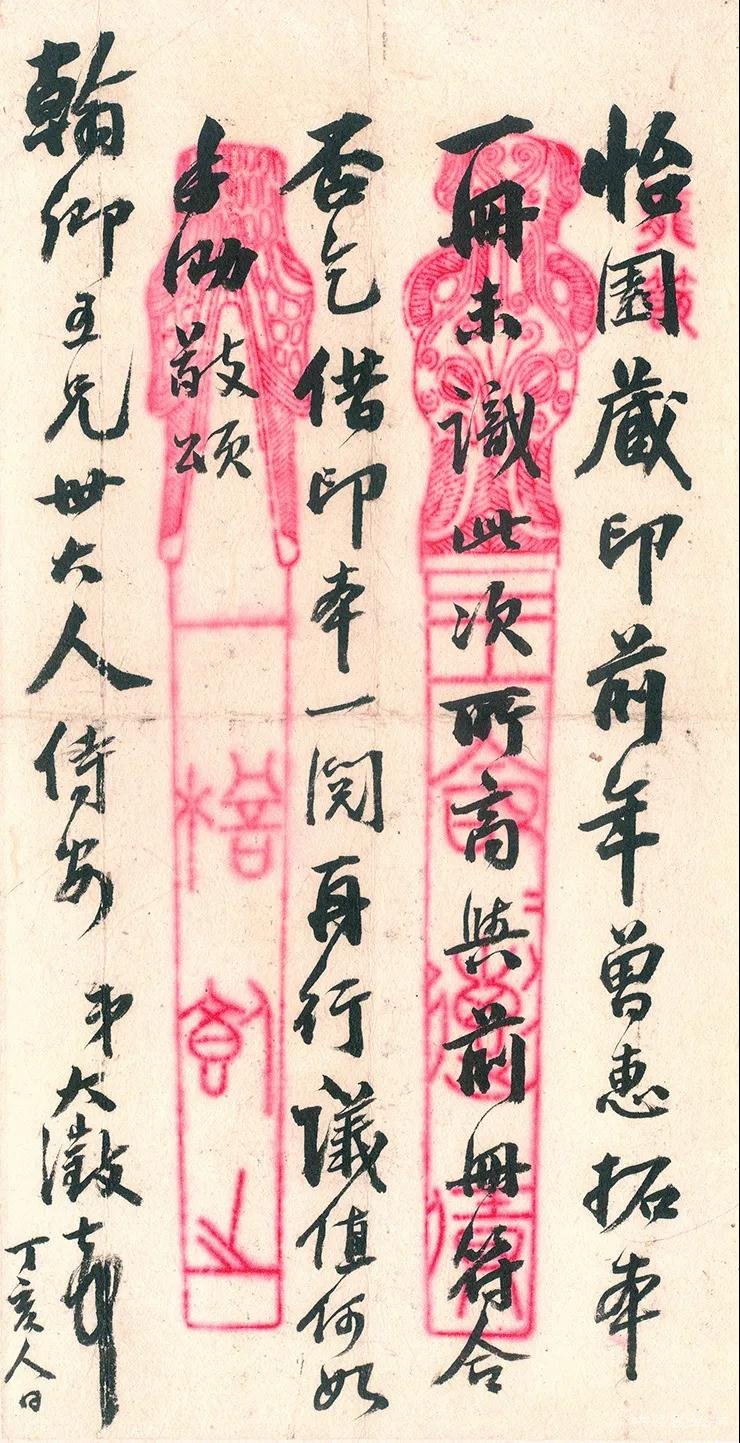 怡園藏印前年曾惠拓本
一冊未識此次所商與前冊符合
否乞借印本一閱再行議值何如
手泐敬頌
翰卿五兄世大人侍安 弟大澂頓首
丁亥人日